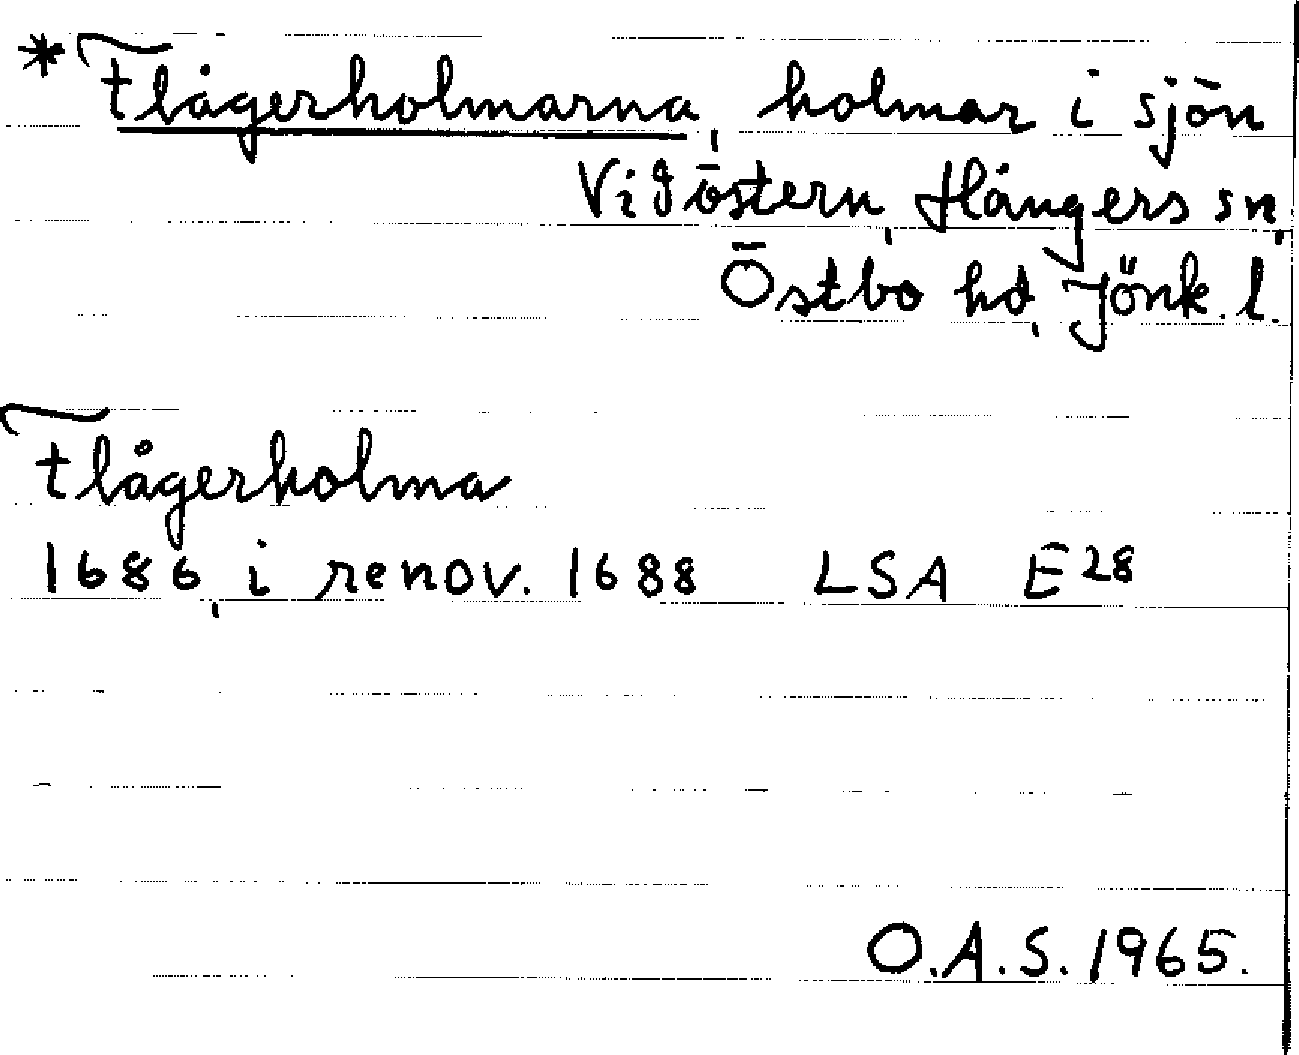 * Flågerholmarna, holmar i sjön
Vidöstern, Hångers sn,
Östbo hd, Jönk. l.
Flågerholma
1686, i renov. 1688 LSA E28
O.A.S. 1965.